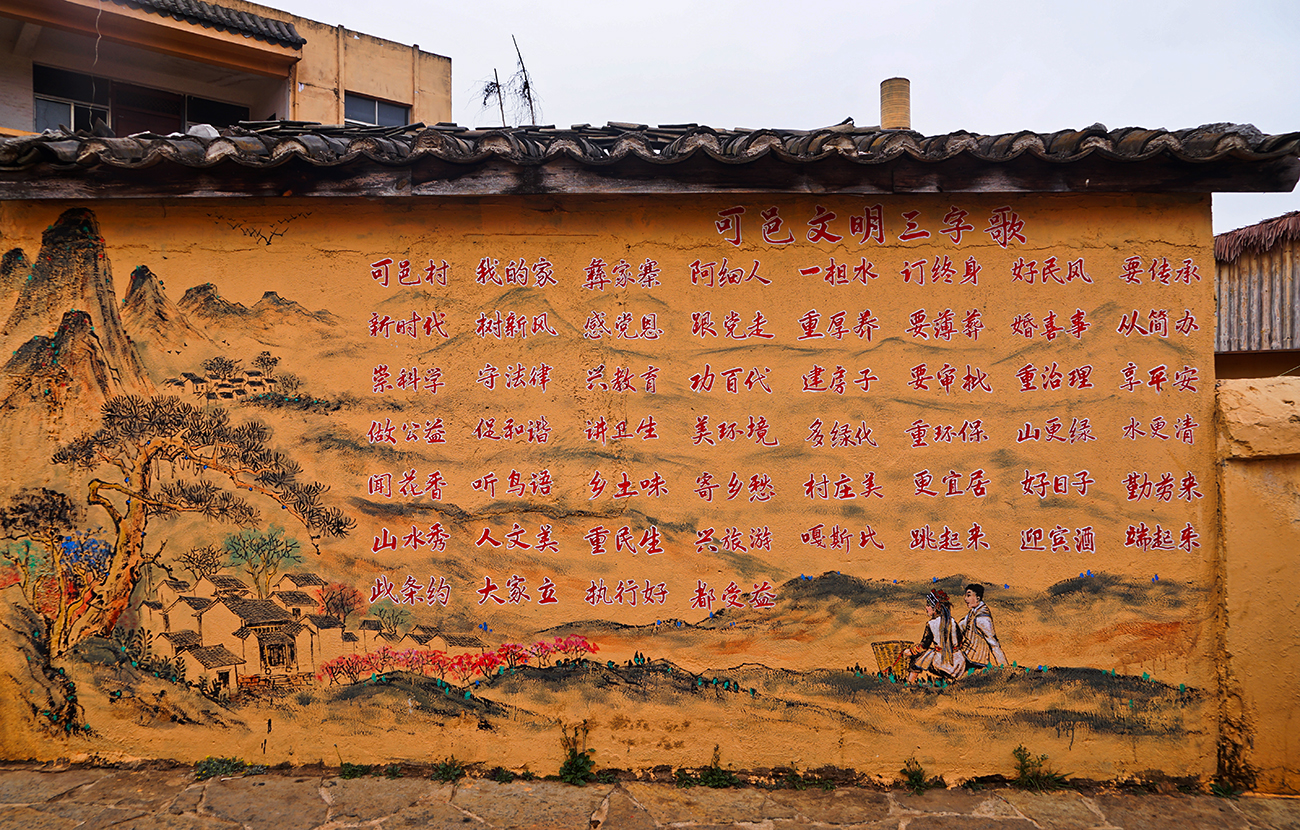 可邑文明三字歌
可邑村 我的家 彝家寨 阿细人 一担水 订终身 好民风 要传承
新时代 树新风 感党恩 跟党走 重厚养 要薄葬 婚喜事 从简办
崇科学 守法律 兴教育 功百代 建房子 要审批 重治理 享平安
做公益 促和谐 讲卫生 美环境 多绿化 重环保 山更绿 水更清
闻花香 听鸟语 乡土味 寄乡愁 村庄美 更宜居 好日子 勤劳来
山水秀 人文美 重民生 兴旅游 嘎斯比 跳起来 迎宾酒 端起来
此条约 大家立 执行好 都受益